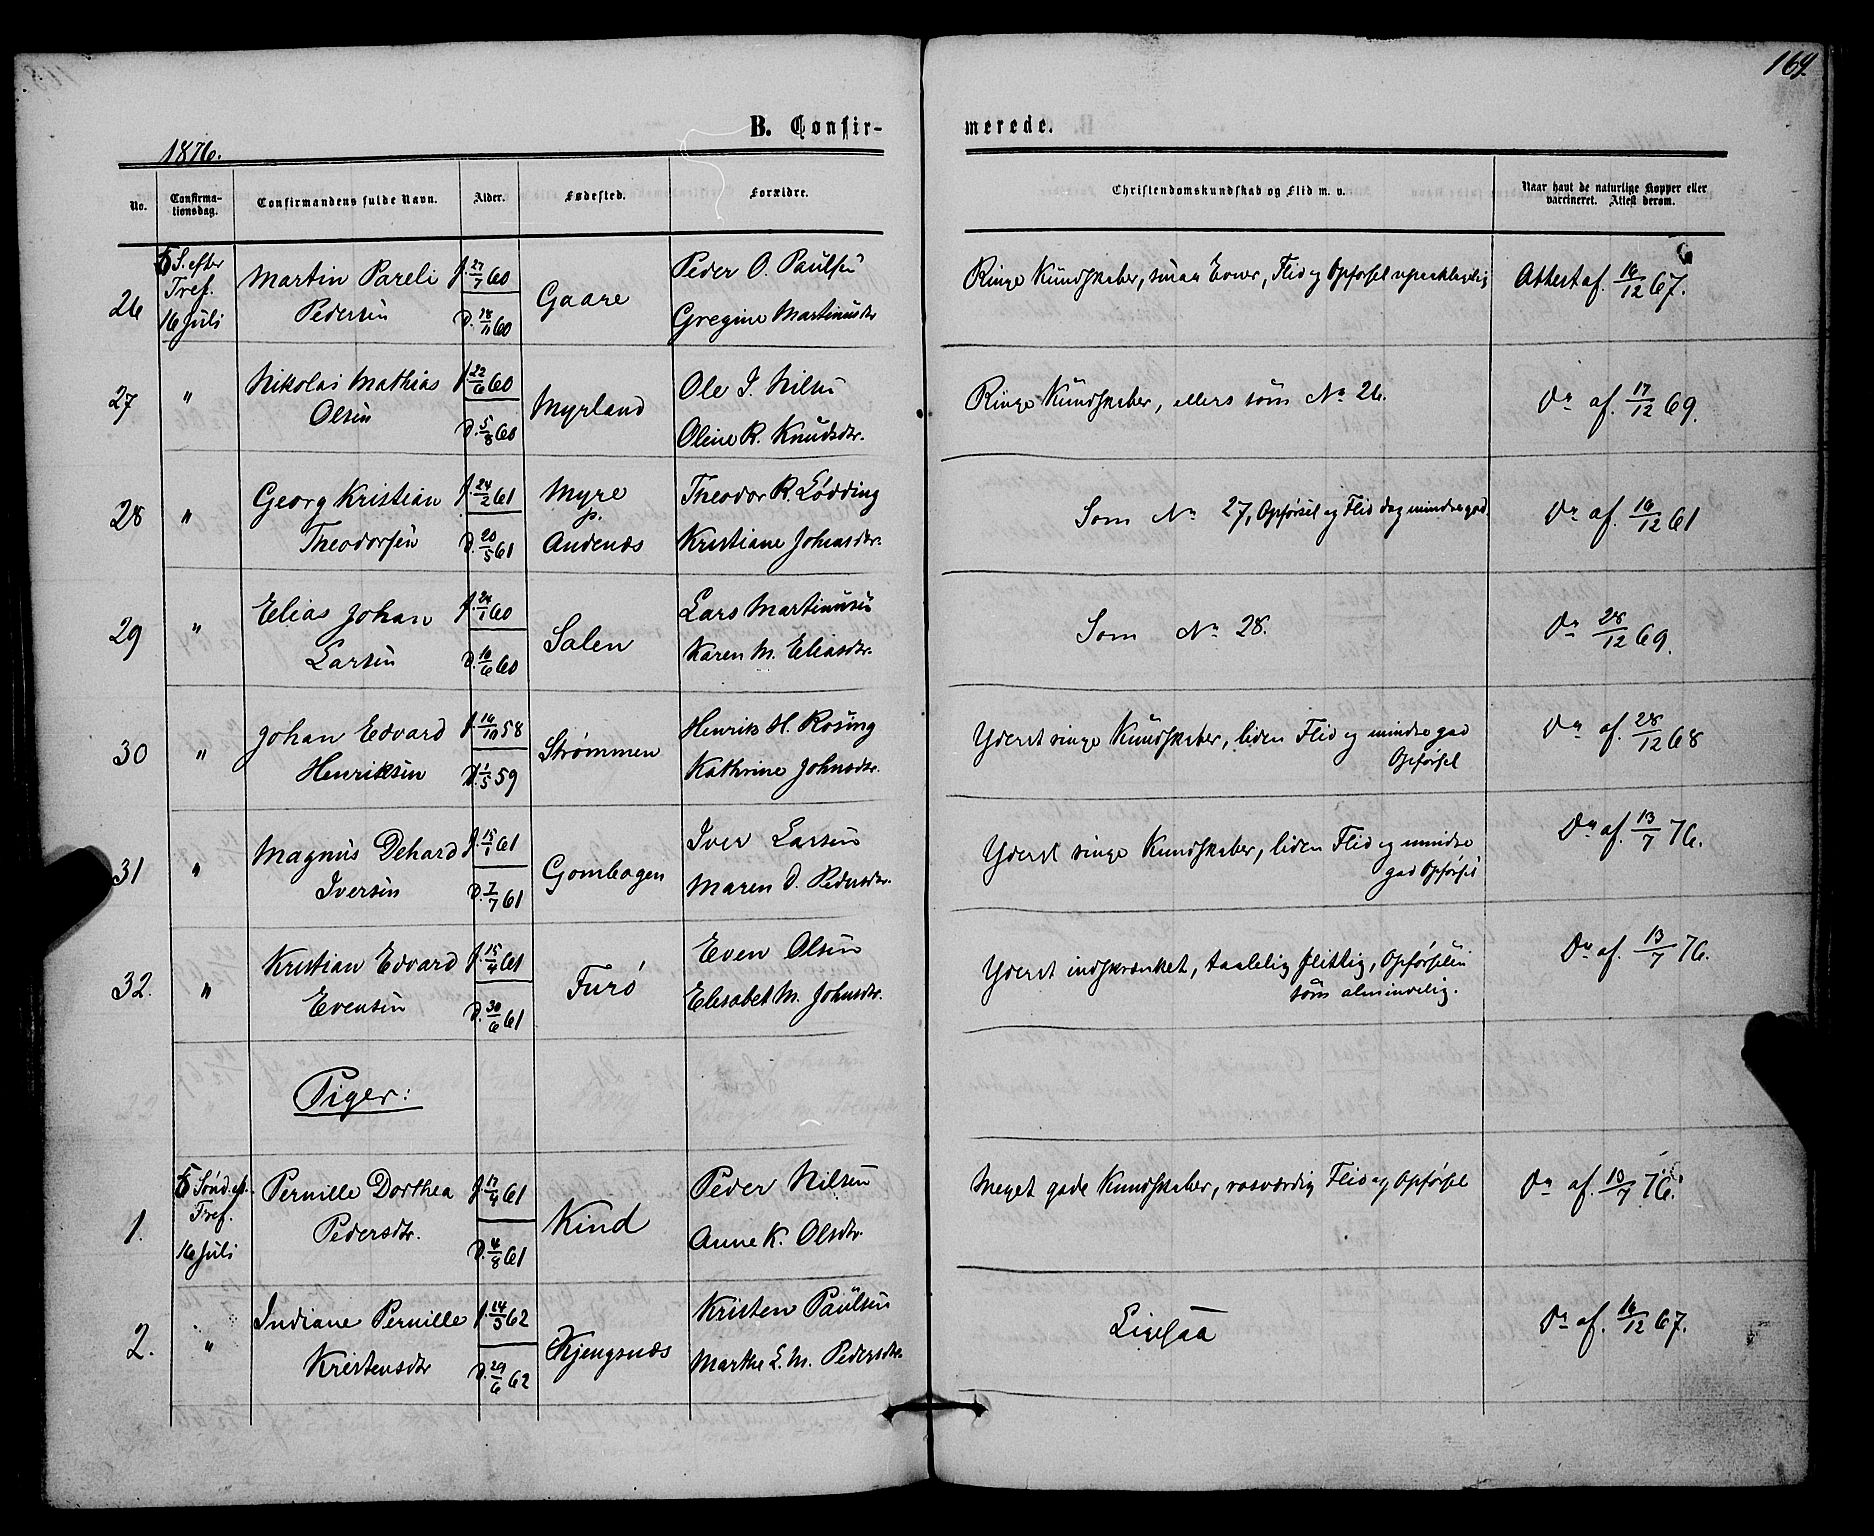 164.
B. Confir-
merede.
1876.
No.
Confirma-
tionsdag.
Confirmandens fulde Navn.
Alder.
Fødested.
Forældre.
Christendomskundskab og Flid m. v.
Naar havt de naturlige Kopper eller
vaccineret. Attest derom.
26
5 S. efter
Tref.
16 Juli
Martin Pareli
Pedersen
f. 27/7 60
d. 18/11 60
Gaare
Peder O. Paulsen
Gregine Martinusdtr
Ringe Kundskaber, smaa Evner, Flid og Opførsel upaaklagelig
Attest af. 16/12 67.
27
"
Nikolai Mathias
Olsen
f. 22/6 60
d. 5/8 60
Myrland
Ole J. Nilsen
Oline R. Knudsdtr.
Ringe Kundskaber, ellers som No 26.
Do af. 17/12 69.
28
"
Georg Kristian
Theodorsen
f. 24/2 61
d. 20/5 61
Myre
p.
Andenæs
Theodor R. Lødding
Kristiane Johnsdtr.
Som No 27, Opførsel og Flid dog mindre god.
Do af. 16/12 61
29
"
Elias Johan
Larsen
f. 24/1 60
d. 16/6 60
Salen
Lars Martinusen
Karen M. Eliasdtr.
Som No 28.
Do 28/12 69.
30
"
Johan Edvard
Henriksen
f. 16/10 58
d. 1/5 59
Strømmen
Henrik H. Rosing
Kathrine Johnsdtr.
Yderst ringe Kundskaber, liden Flid og mindre god
Opførsel
Do af. 28/12 68
31
"
Magnus Dehard
Iversen
f. 15/1 61
d. 7/7 61
Gombogen
Iver Larsen
Maren D. Pedersdtr.
Yderst ringe Kundskaber, liden Flid og mindre
god Opførsel
Do af. 13/7 76.
32.
"
Kristian Edvard
Evensen
f. 15/4 61
d. 30/6 61
Furø
Even Olsen
Elisabet M. Johnsdtr.
Yderst indskrænket, taalelig flittig, Opførselen
som almindelig.
Do af. 13/7 76.
Piger:
1.
5 Sønd. ef.
Tref.
16 Juli
Pernille Dorthea
Pedersdtr.
f. 17/4 61
d. 4/8 61
Kind
Peder Nilsen
Anne K. Olsdtr.
Meget gode Kundskaber, rosværdig Flid og Opførsel
Do af. 13/7 76.
2.
"
Indiane Pernille
Kristensdtr
f. 14/3 62
d. 29/6 62
Kjengsnæs
Kristen Paulsen
Marthe L. M. Pedersdtr.
Ligesaa
Do af. 16/12 67.